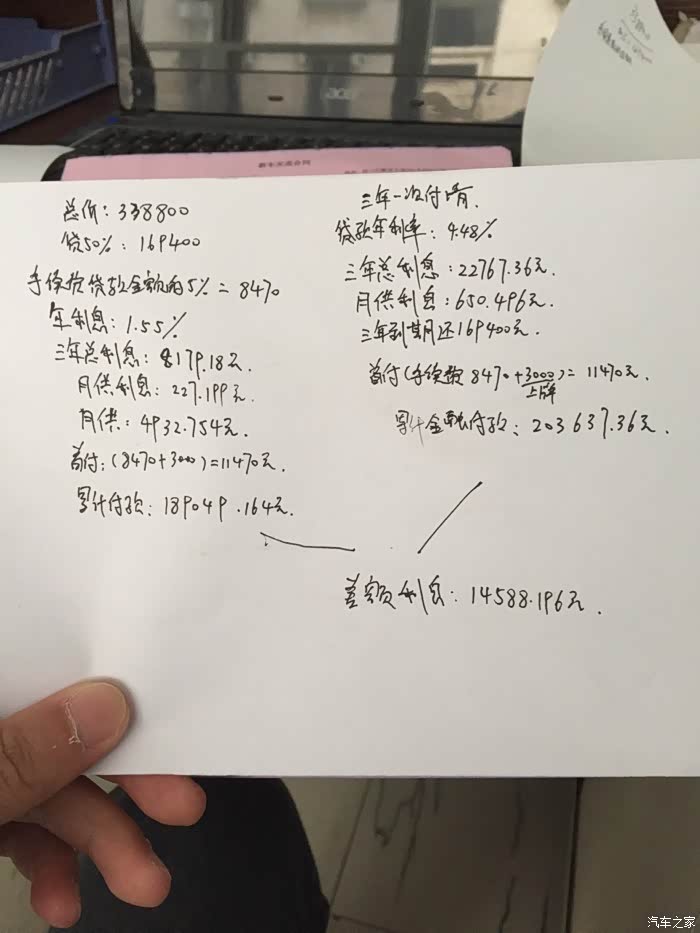 acer
新车买卖合同
总价：338800
贷50%：169400
手续按贷款金额的5%=8470
年利息：1.55%
三年总利息：8179.18元.
月供利息：227.199元.
月供：4932.754元.
首付：(8470+3000)=11470元.
累计付款：189049.164元.
三年一次付清.
贷款年利率：4.48%
三年总利息：22767.36元.
月供利息：650.496元.
三年到期还169400元.
首付(手续费8470+3000)=11470元.
上牌
累计金融付款：203637.36元.
差额利息：14588.196元.
汽车之家